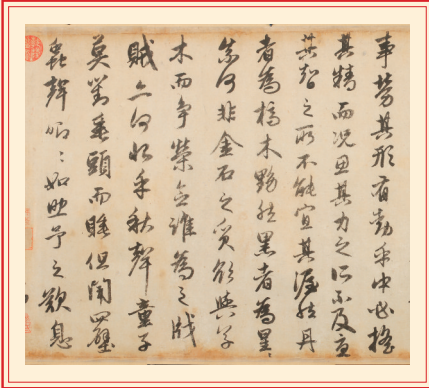 事勞其形有動乎中必搖
其精而況思其力之所不及憂
其智之所不能宜其渥然丹
者為槁木黟然黑者為星〻
奈何非金石之質欲與草
木而爭榮念誰為之戕
賊亦何恨乎秋聲童子
莫對垂頭而睡但聞四壁
蟲聲唧〻如助予之歎息